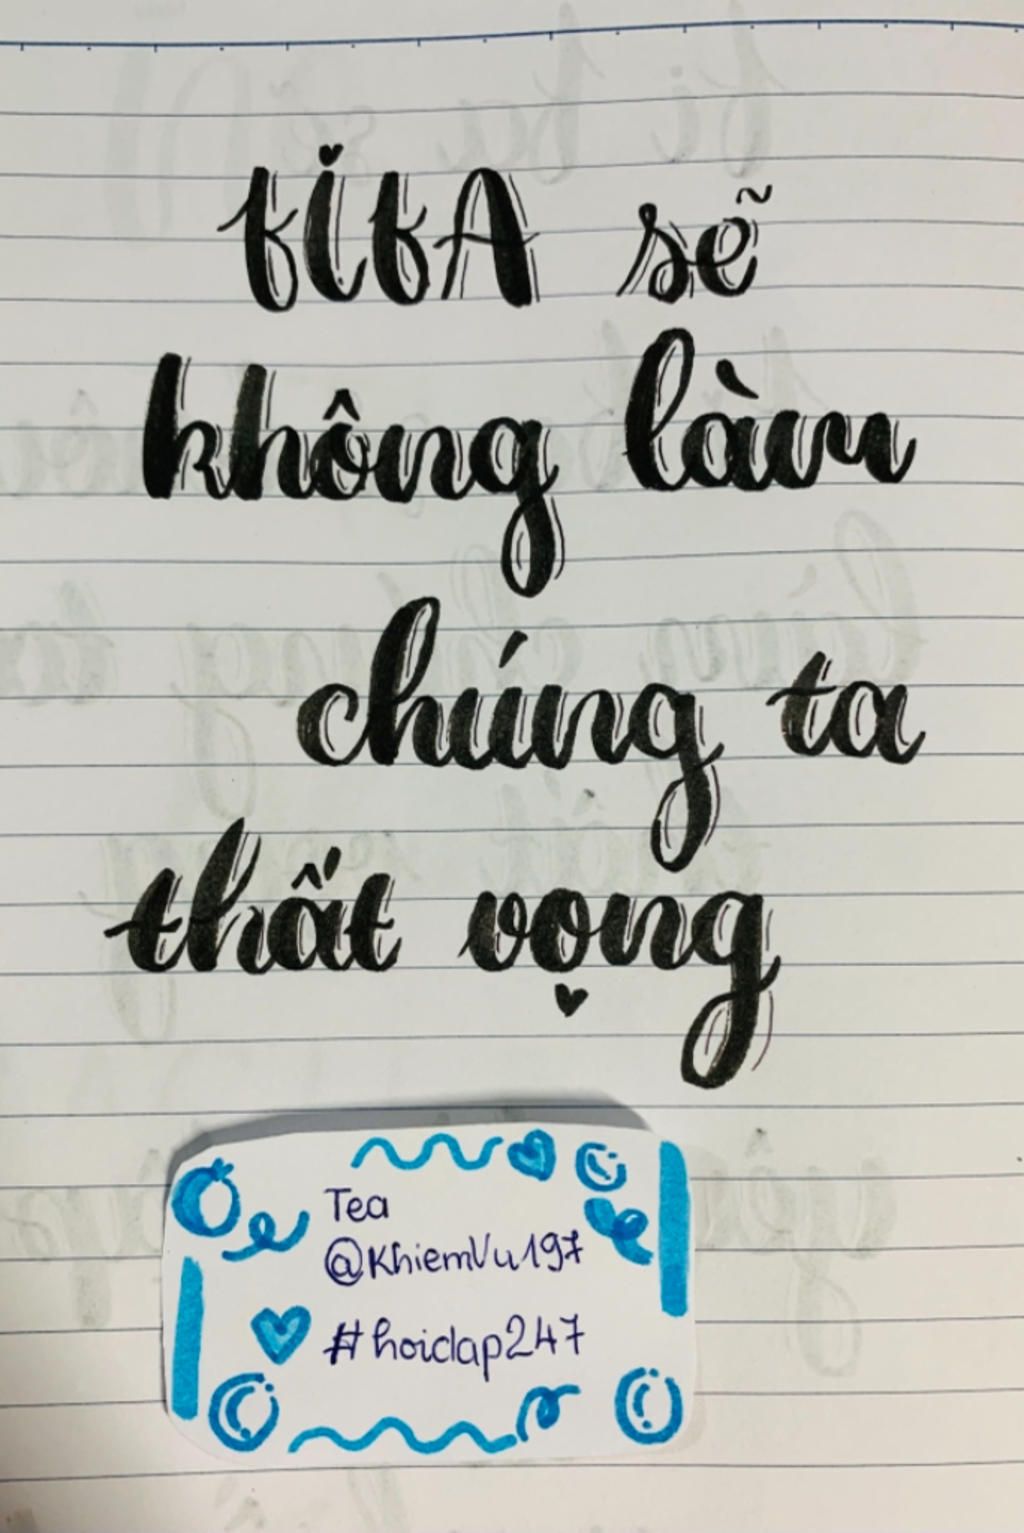 títA sẽ
không làm
chúng ta
thất vọng
Tea
@KhiemVu197
#hoidap247